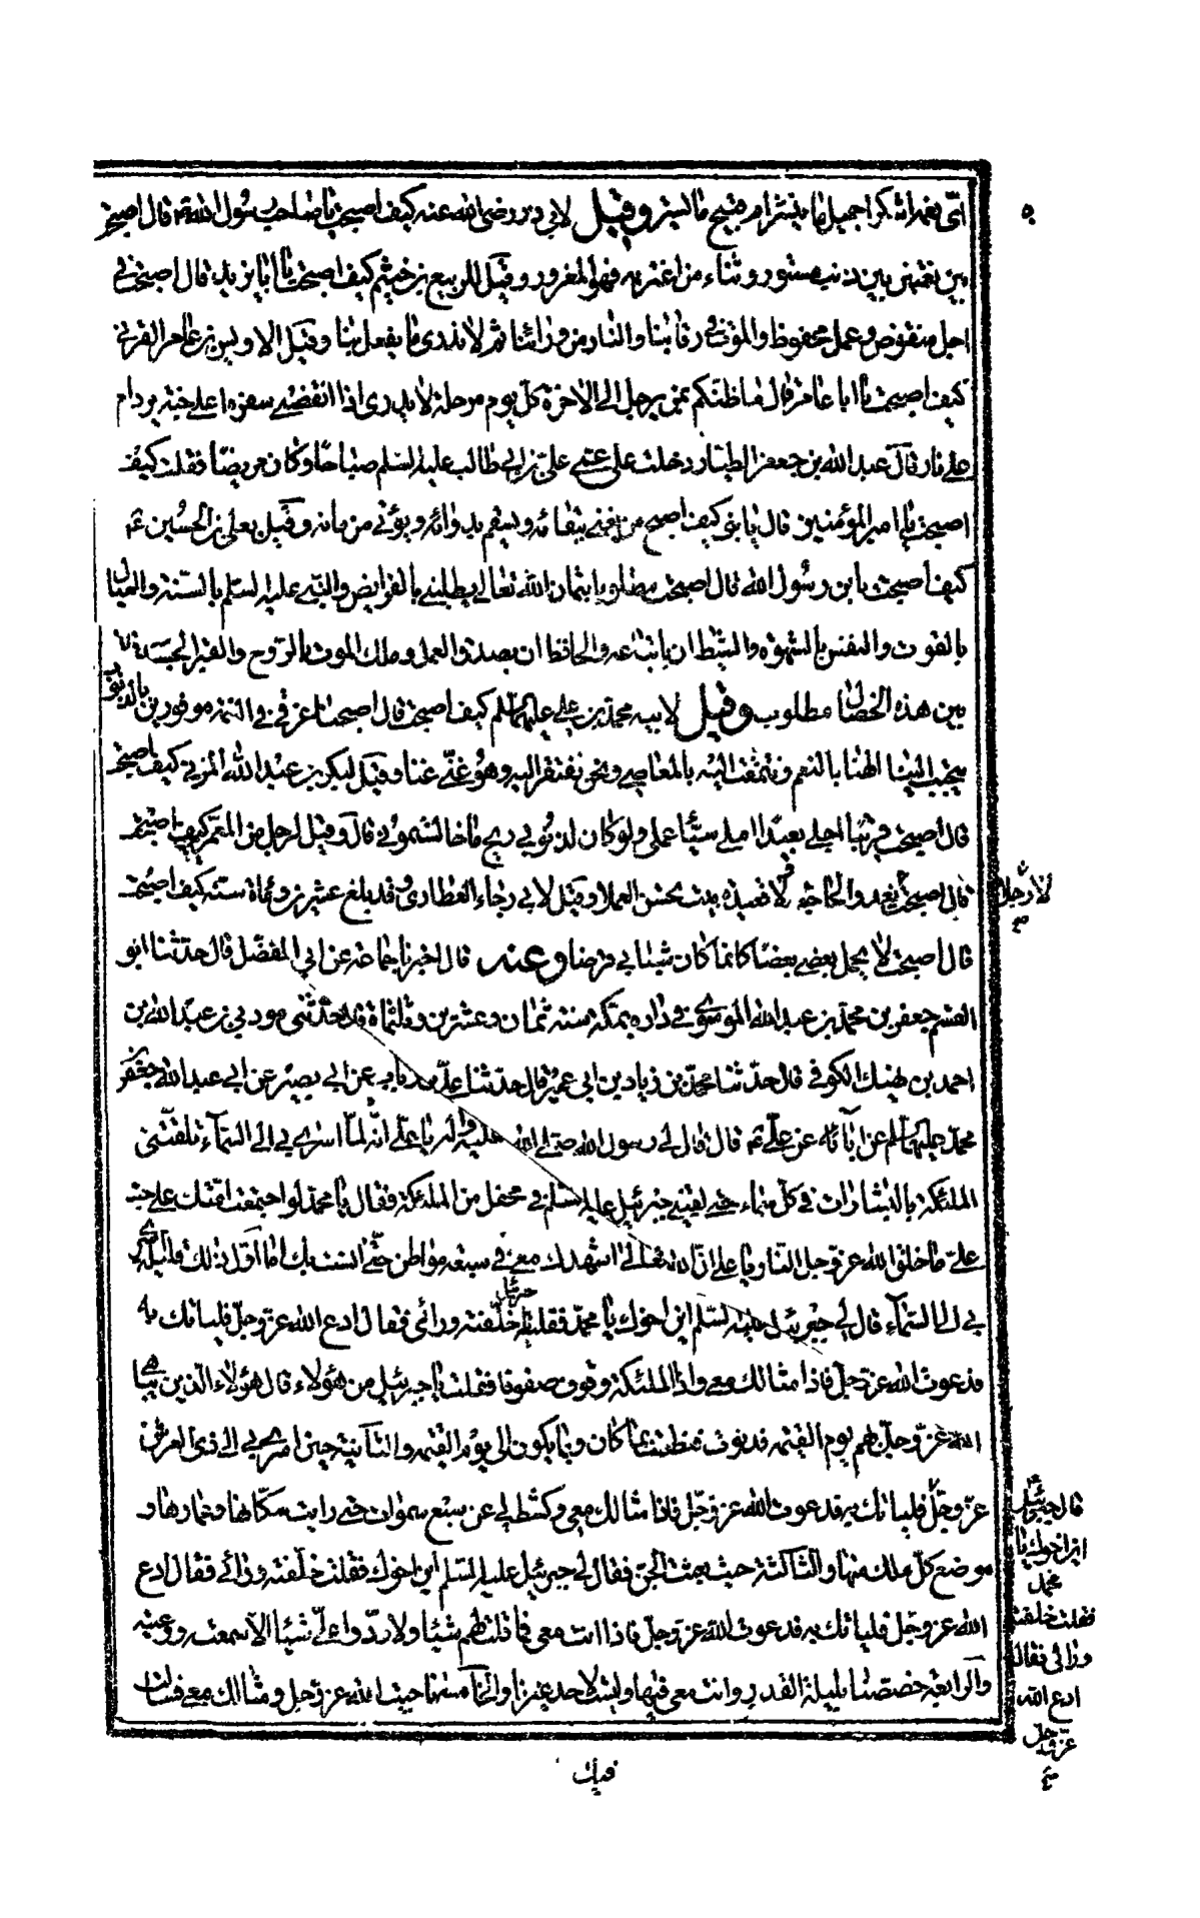 اىّ نعمه اشكر اجميل ما ينشر ام قبيح ما يستر وقيل لابى ذر رضى الله عنه كيف اصبحت يا صاحب رسول الله ص قال اصبحت
بين نعمتين بين ذنب مستور وثناء من اغتر به فهو المغرور وقيل للربيع بن خثيم كيف اصبحت يا ابا يزيد قال اصبحت فى
اجل منقوص وعمل محفوظ والموت فى رقابنا والنار من ورائنا ثم لا ندرى ما يفعل بنا وقيل لاويس بن عامر القرنى
كيف اصبحت يا ابا عامر قال ما ظنكم بمن يرحل الى الاخرة كل يوم مرحلة لا يدرى اذا انقضى سفره اعلى جنة يرد ام
على نار قال عبد الله بن جعفر الطيار دخلت على عمى على بن ابى طالب عليه السلم صباحا وكان مريضا فقلت كيف
اصبحت يا امير المؤمنين قال يا بنى كيف اصبح من يفنى ببقائه ويسقم بدوائه ويؤتى من مامنه وقيل لعلى بن الحسين ع
كيف اصبحت يا بن رسول الله قال اصبحت مطلوبا بثمان الله تعالى يطلبنى بالفرايض والنبى عليه السلم بالسنة والعيال
بالقوت والنفس بالشهوة والشيطان باتباعه والحافظان بصدق العمل وملك الموت بالروح والقبر بالجسد فانا
بين هذه الخصال مطلوب وقيل لابيه محمد بن على عليهما السلم كيف اصبحت قال اصبحنا غرقى فى النعمة موفورين بالذنوب
يتحبب الينا الهنا بالنعم ونتمقت اليه بالمعاصى ونحن نفتقر اليه وهو غنى عنا وقيل لبكر بن عبد الله المزنى كيف اصبحت
قال اصبحت قريبا اجلى بعيدا املى سيئا عملى ولو كان لذنوبى ريح ما جالستمونى قال وقيل لرجل من المعمرين كيف اصبحت
قال اصبحت
لا رجل
قال اصبحت لا يحمل بعضى بعضا كانما كان شبابى قرضا وعنه قال اخبرنا جماعة عن ابى المفضل قال حدثنا ابو
القسم جعفر بن محمد بن عبد الله الموسوى فى داره بمكة سنة ثمان وعشرين وثلثمائة قال حدثنى مودبى عبد الله بن
احمد بن نهيك الكوفى قال حدثنا محمد بن زياد بن ابى عمير قال حدثنا على بن رئاب عن ابى بصير عن ابى عبد الله جعفر بن
محمد عليهما السلم عن آبائه عن على ع قال قال لى رسول الله صلى الله عليه وآله يا على انه لما اسرى بى الى السماء تلقتنى
الملئكة بالبشارات فى كل سماء حتى لقينى جبرئيل عليه السلم فى محفل من الملئكة فقال يا محمد لو اجتمعت امتك على حب
على ما خلق الله عز وجل النار يا على ان الله تعالى اشهدك معى فى سبعة مواطن حتى انست بك اما اول ذلك فليلة اسرى
بى الى السماء قال لى جبرئيل عليه السلم اين اخوك يا محمد فقلت يا جبرئيل خلفته ورائى فقال ادع الله عز وجل فلياتك به
فدعوت الله عز وجل فاذا مثالك معى واذا الملئكة وقوف صفوفا فقلت يا جبرئيل من هؤلاء قال هؤلاء الذين يباهى
الله عز وجل بهم يوم القيمة فدنوت فنطقت بما كان وبما يكون الى يوم القيمة والثانية حين اسرى بى الى ذى العرش
قال جبرئيل
اين اخوك يا
محمد
فقلت خلفته
ورائى فقال
ادع الله
عز وجل
عز وجل فلياتك به فدعوت الله عز وجل فاذا مثالك معى وكشط لى عن سبع سموات حتى رايت سكانها وعمارها و
موضع كل ملك منها والثالثة حيث بعثت الى الجن فقال لى جبرئيل عليه السلم اين اخوك فقلت خلفته ورائى فقال ادع
الله عز وجل فلياتك به فدعوت الله عز وجل فاذا انت معى فما قلت لهم شيئا ولا ردوا على شيئا الا سمعته ووعيته
والرابعة خصصنا بليلة القدر وانت معى فيها وليست لاحد غيرنا والخامسة ناجيت الله عز وجل ومثالك معى فسالت
فيك